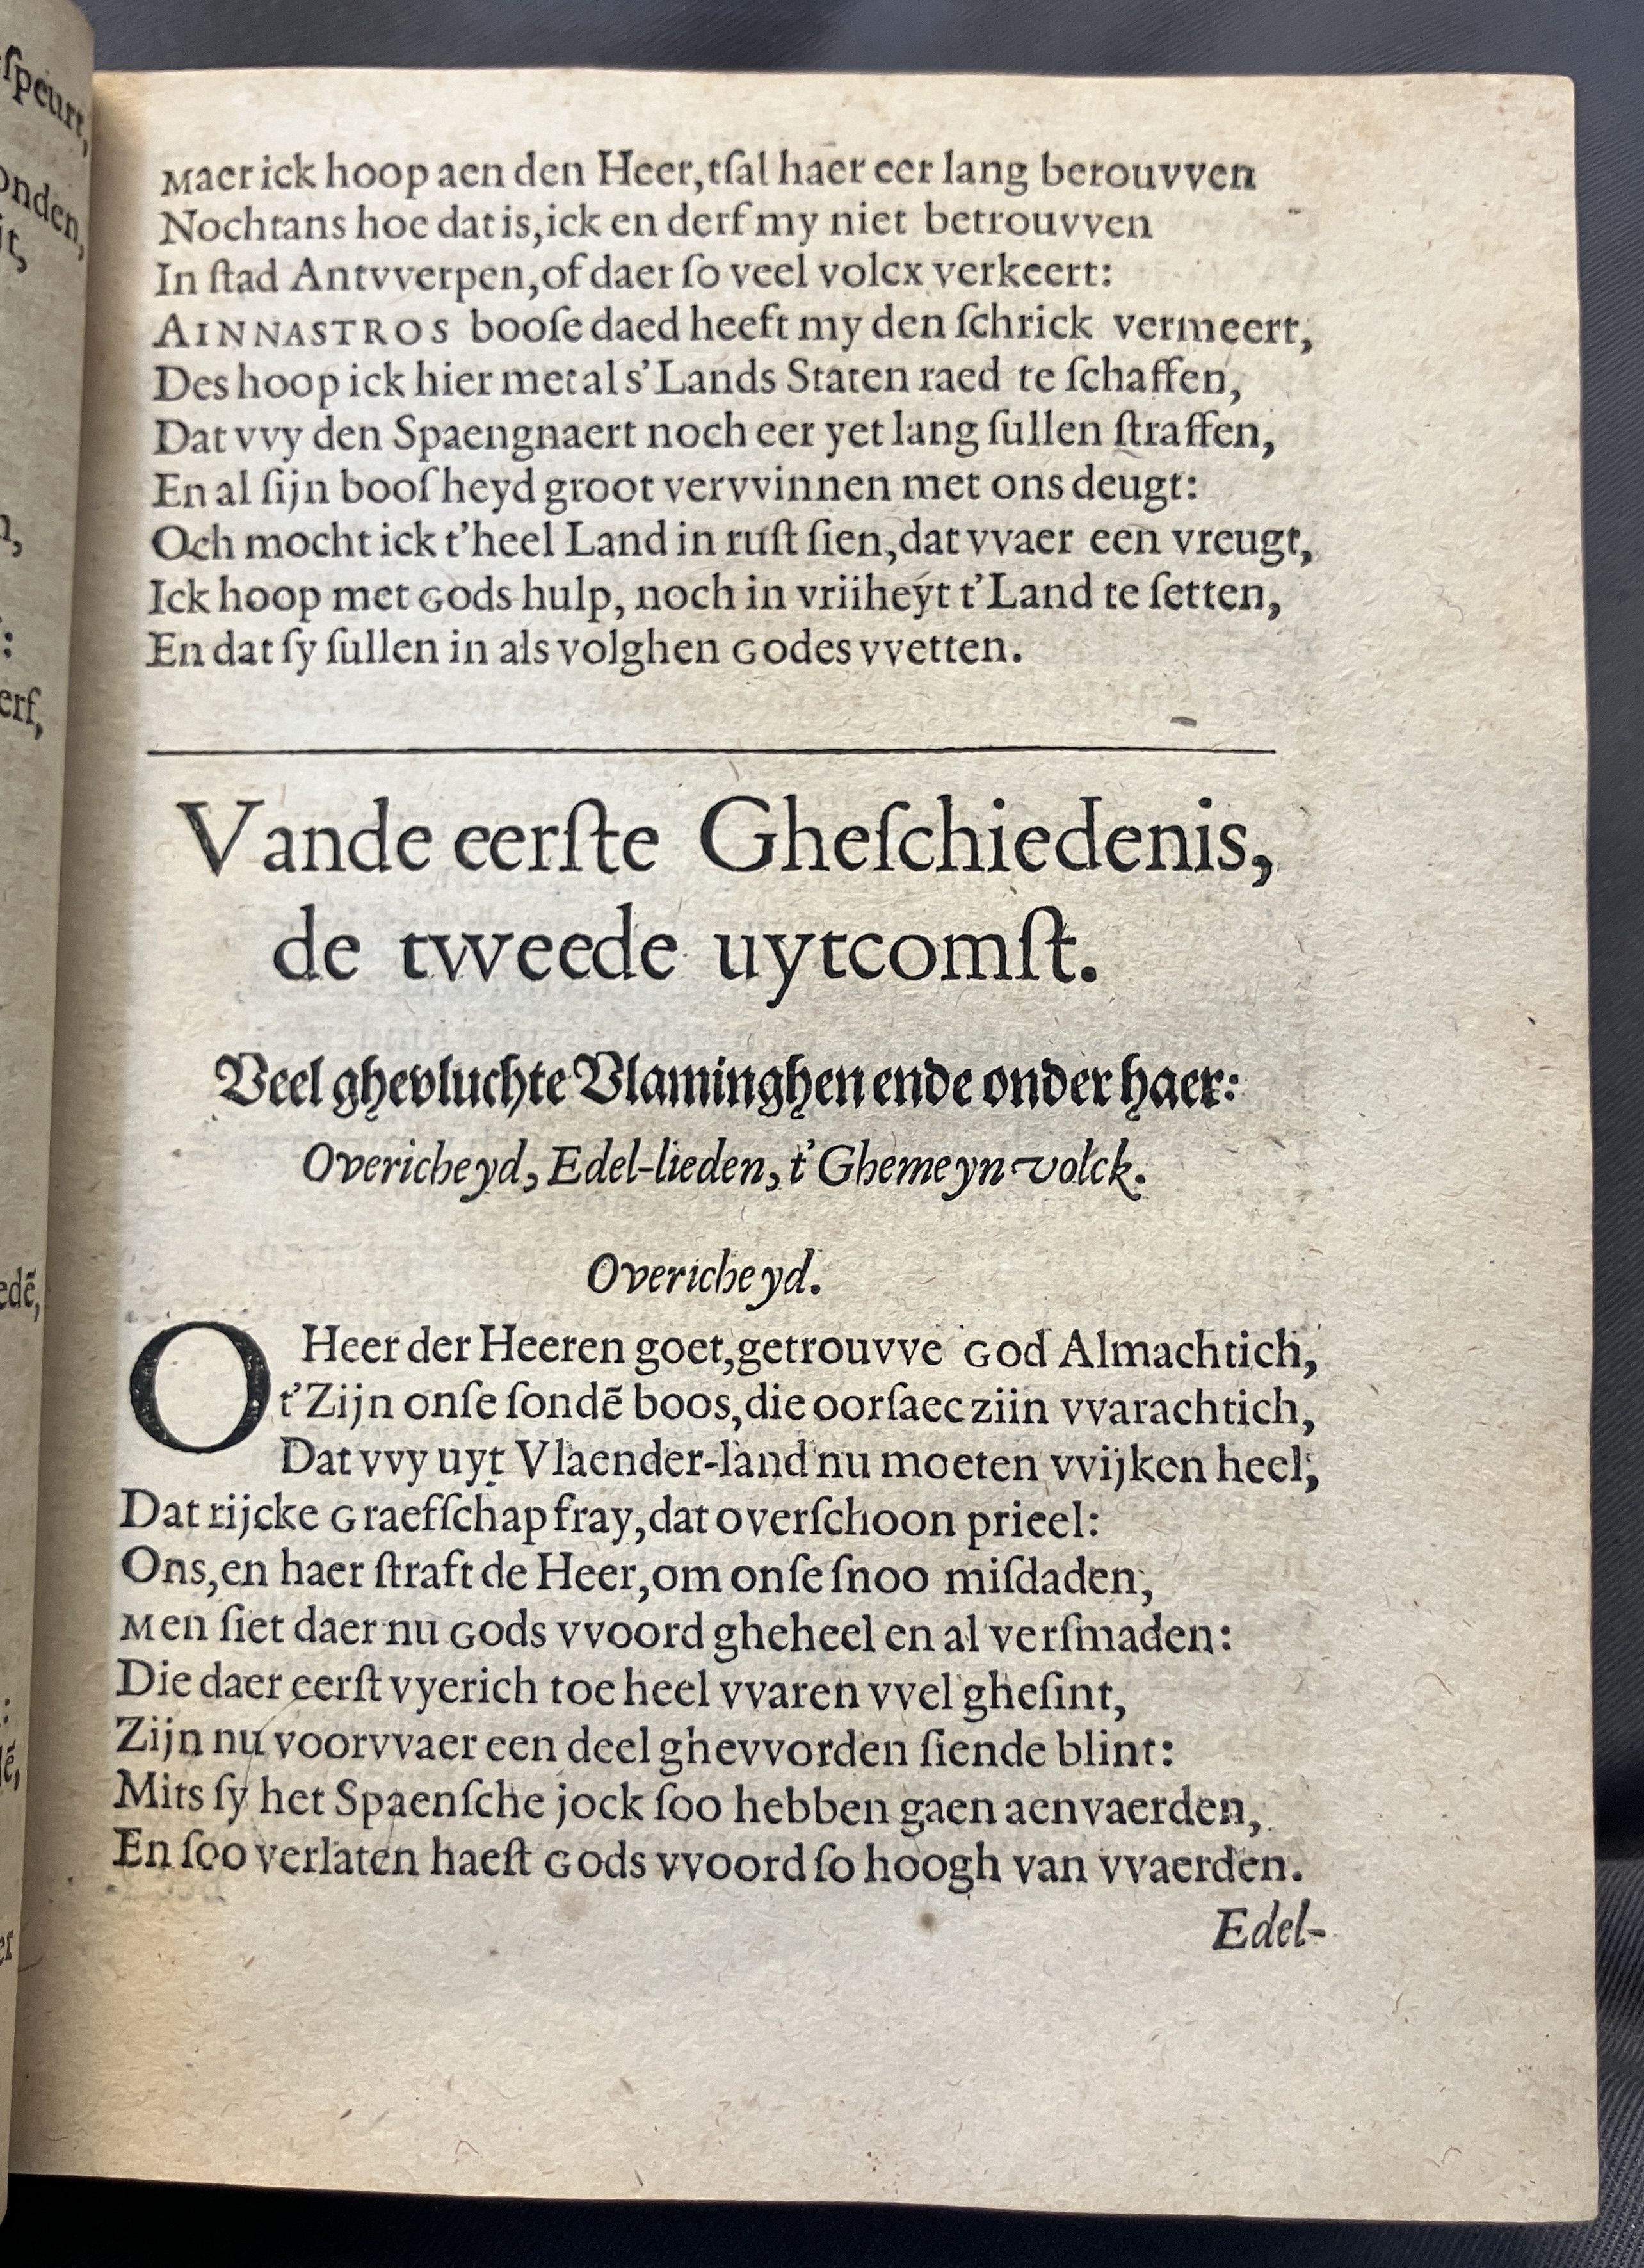 Maer ick hoop aen den Heer, tſal haer eer lang berouvven
Nochtans hoe dat is, ick en derf my niet betrouvven
In ſtad Antvverpen, of daer ſo veel volcx verkeert:
AINNASTROS booſe daed heeft my den ſchrick vermeert,
Des hoop ick hier met al s'Lands Staten raed te ſchaffen,
Dat vvy den Spaengnaert noch eer yet lang ſullen ſtraffen,
En al ſijn booſheyd groot vervvinnen met ons deugt:
Och mocht ick t'heel Land in ruſt ſien, dat vvaer een vreugt,
Ick hoop met Gods hulp, noch in vriiheyt t'Land te ſetten,
En dat ſy ſullen in als volghen Godes vvetten.
Vande eerſte Gheſchiedenis,
de tvveede uytcomſt.
Veel ghevluchte Vlaminghen ende onder haer:
Overicheyd, Edel-lieden, t'Ghemeyn volck.
Overicheyd.
O Heer der Heeren goet, getrouvve God Almachtich,
t'Zijn onſe ſondē boos, die oorſaec ziin vvarachtich,
Dat vvy uyt Vlaender-land nu moeten vvijken heel,
Dat rijcke Graefſchap fray, dat overſchoon prieel:
Ons, en haer ſtraft de Heer, om onſe ſnoo miſdaden,
Men ſiet daer nu Gods vvoord gheheel en al verſmaden:
Die daer eerſt vyerich toe heel vvaren vvel gheſint,
Zijn nu voorvvaer een deel ghevvorden ſiende blint:
Mits ſy het Spaenſche jock ſoo hebben gaen aenvaerden,
En ſoo verlaten haeſt Gods vvoord ſo hoogh van vvaerden.
Edel-